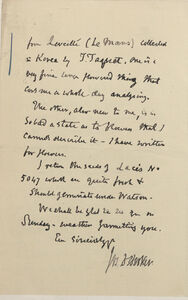 from Leveillé (Le Mans) collected
in Korea by T. Taquet, one is a
very fine large flowered thing that
cost me a whole day analysing.
The other, also new to me, is in
so bad a state as to flowers that I
cannot describe it – I have written
for flowers.
I return the seeds of Lace's No
5047 which are quite fresh &
should germinate under Watson.
We shall be glad to see you on
Sunday – weather permitting you.
Ev sincerely yrs
Jos D Hooker